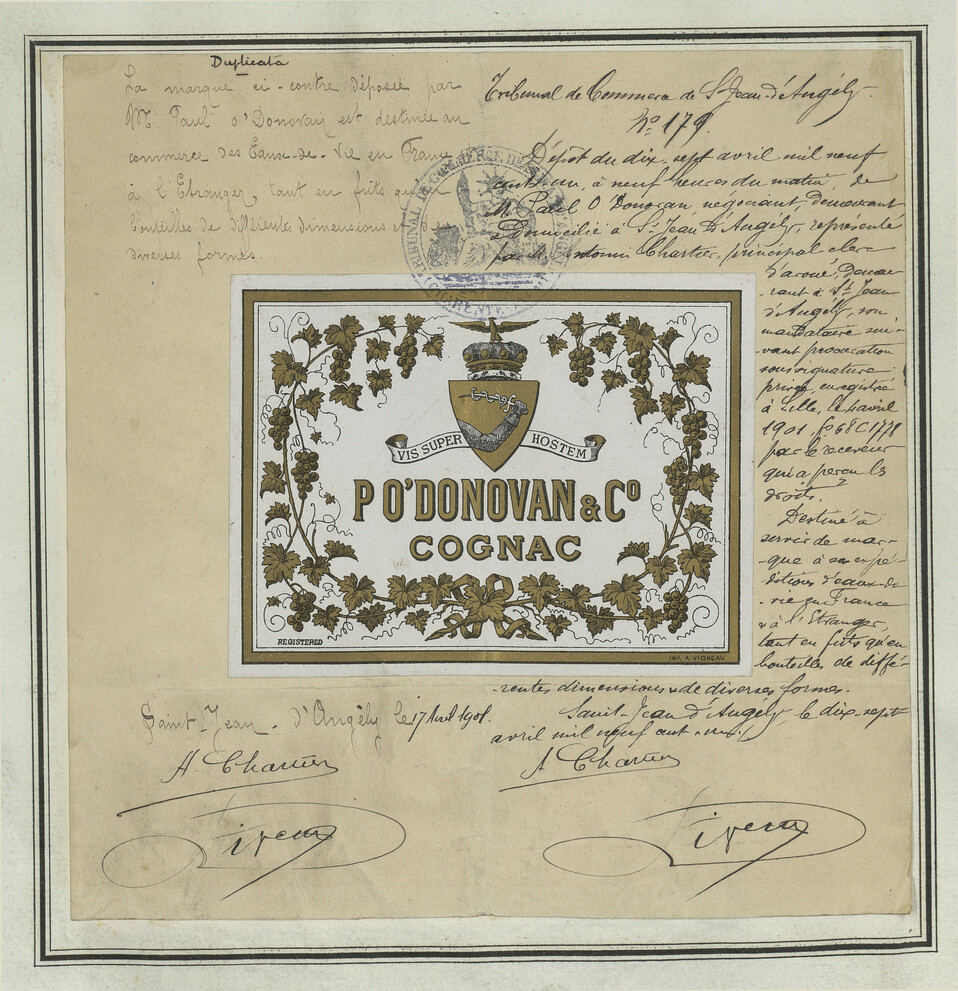 Duplicata
La marque ci-contre déposée par
Mr Paul O'Donovan est destinée au
commerce des Eaux-de-Vie en France
à l'Etranger, tant en fûts qu'en
bouteilles de différentes dimensions et de
diverses formes.
Saint-Jean-d'Angély le 17 Avril 1901.
A. Chartier
Tribunal de Commerce de St Jean d'Angély.
No 179.
Dépôt du dix-sept avril mil neuf
cent un, à neuf heures du matin, de
M. Paul O'Donovan négociant demeurant
& domicilié à St Jean d'Angély, représenté
par M. Antonin Chartier, principal clerc
d'avoué, demeu-
-rant à St Jean
d'Angély, son
mandataire sui-
-vant procuration
sous signature
privée enregistrée
à Lille, le 4 avril
1901, fo 68 C 1778
par le receveur
qui a perçu les
droits.
Destiné à
servir de mar-
-que à ses expé-
-ditions d'eaux-de
-vie en France
& à l'Etranger,
tant en fûts qu'en
bouteilles de diffé-
-rentes dimensions & de diverses formes.
Saint-Jean d'Angély le dix-sept
avril mil neuf cent un.
A Chartier
TRIBUNAL DE COMMERCE DE
VIS SUPER HOSTEM
P O'DONOVAN & Co
COGNAC
REGISTERED
IMP. A. VIGNEAU